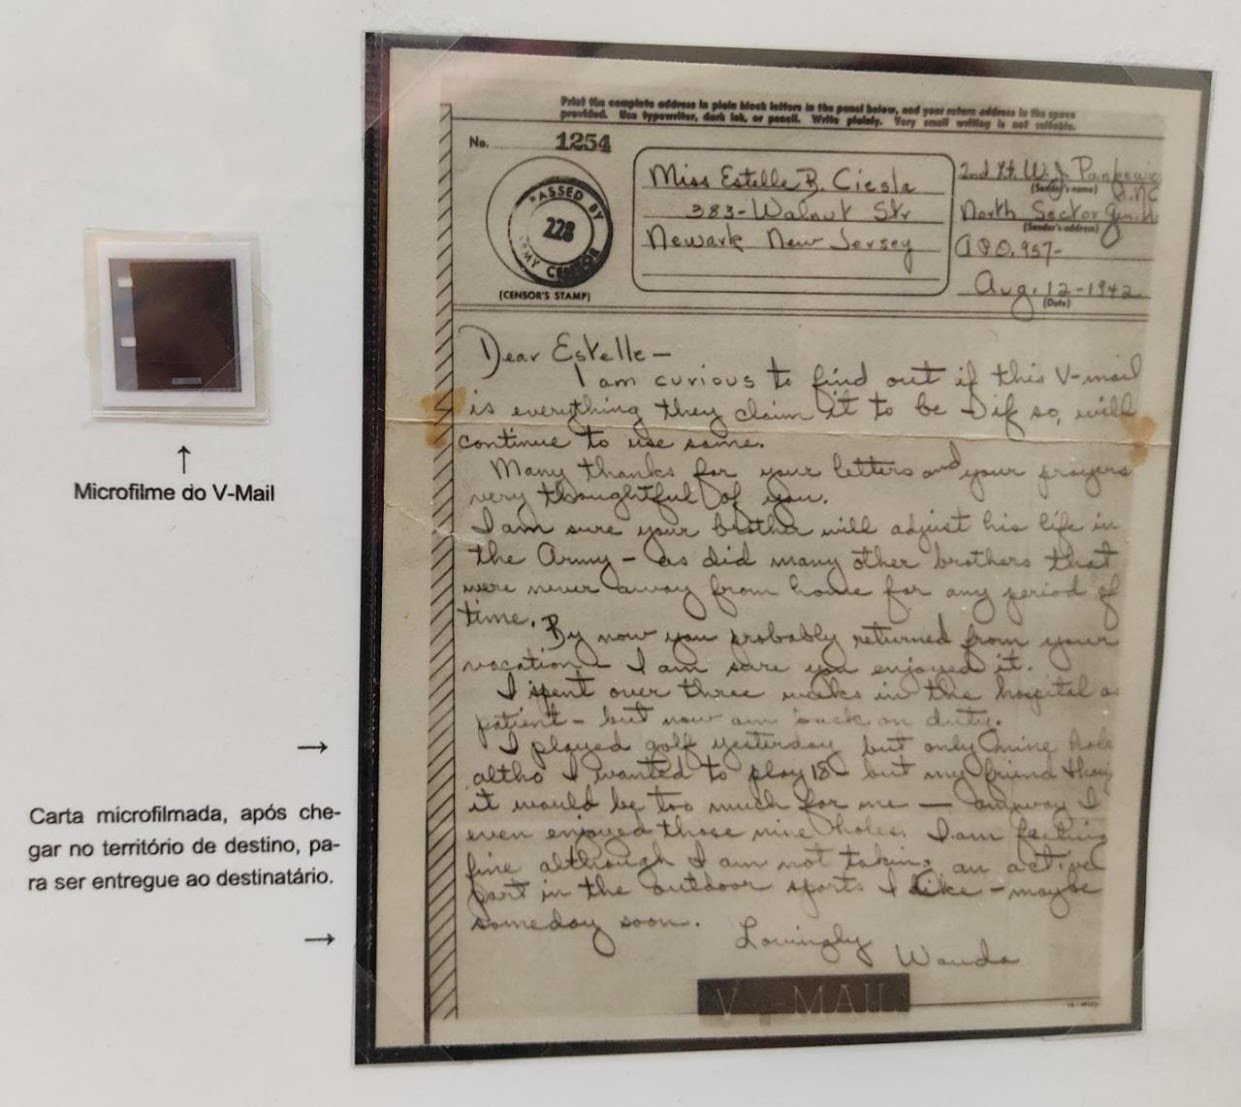 Microfilme do V-Mail
Carta microfilmada, após che-
gar no território de destino, pa-
ra ser entregue ao destinatário.
Print the complete address in plain block letters in the panel below, and your return address in the space
provided. Use typewriter, dark ink, or pencil. Write plainly. Very small writing is not suitable.
No. 1254
PASSED BY
228
ARMY CENSOR
(CENSOR'S STAMP)
Miss Estelle B. Ciesla
383-Walnut Str
Newark New Jersey
2nd Lt. W.J.
(Sender's name)
A.N.C
North Sector Gen. H
(Sender's address)
A.P.O. 957-
Aug. 12-1942
(Date)
Dear Estelle-
I am curious to find out if this V-mail
is everything they claim it to be - if so, will
continue to use same.
Many thanks for your letters and your prayers
very thoughtful of you.
I am sure your brother will adjust his life in
the Army - as did many other brothers that
were never away from home for any period of
time.
By now you probably returned from your
vacation - I am sure you enjoyed it.
I spent over three weeks in the hospital as
patient - but now am back on duty.
I played golf yesterday but only nine hole
altho I wanted to play 18 - but my friend thoug
it would be too much for me - anyway I
even enjoyed those nine holes. I am feeling
fine although I am not taking an active
part in the outdoor sports I like - maybe
someday soon.
Lovingly
Wanda
V-MAIL